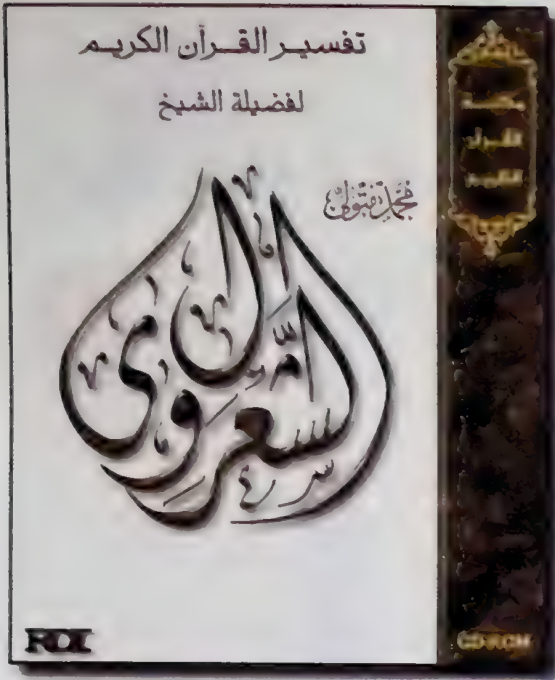 تفسير القرآن الكريم
لفضيلة الشيخ
محمد متولى
الشعراوى
مكتبة
القرآن
الكريم
RDI
CD-ROM